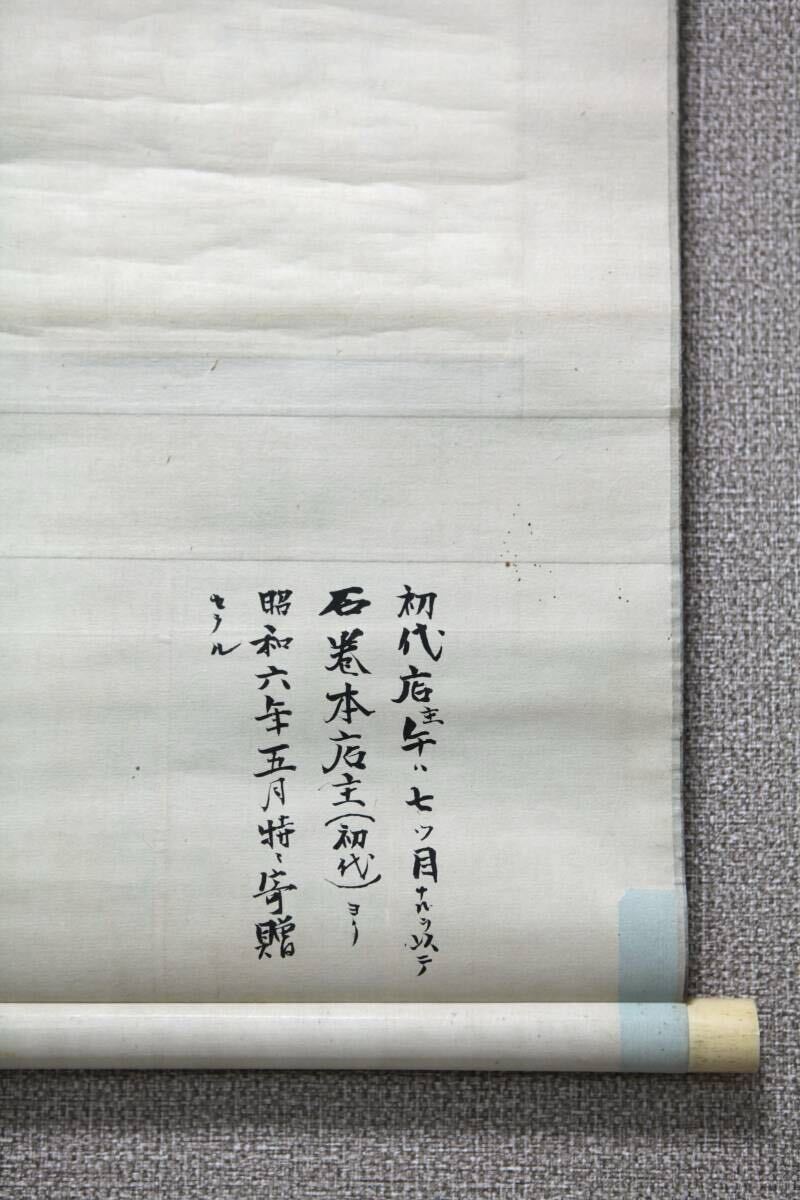 初代店主午ハ七ツ目ナルヲ以テ
石巻本店主(初代)ヨリ
昭和六年五月特ニ寄贈
セラル